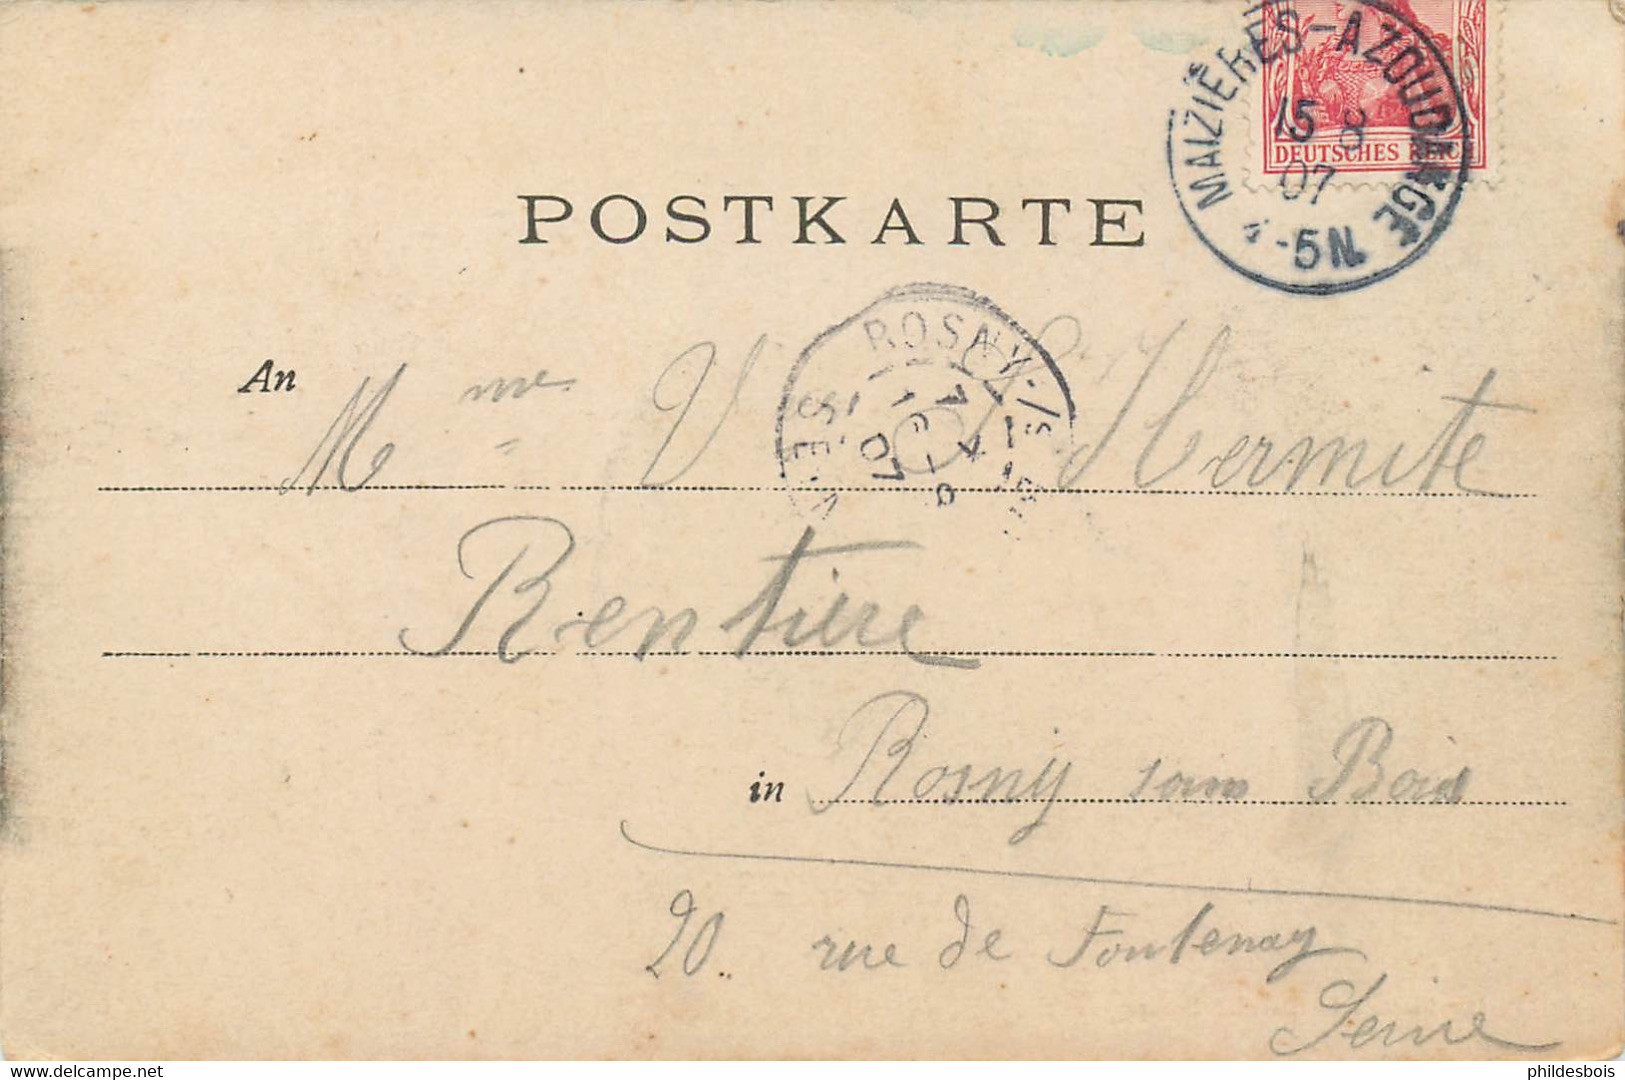 MAIZIÈRES-AZOUDANGE
15 8
07
4-5N.
DEUTSCHES REICH
POSTKARTE
ROSNY-S
07
An Mme V L'Hermite
Rentière
in Rosny sous Bois
20 rue de Fontenay
Seine
delcampe.net
phildesbois